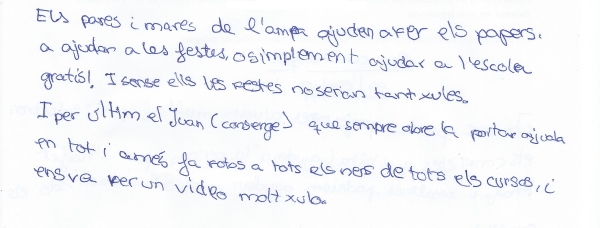 Els pares i mares de l'ampa ajuden a fer els papers.
a ajudar a les festes, o simplement ajudar a l'escola
gratis!, I sense ells les festes no serian tant xules.
I per ultim el Juan (conserge) que sempre obre la porta ajuda
en tot i amés fa fotos a tots els nens de tots els cursos, i
ens va fer un video molt xulo.